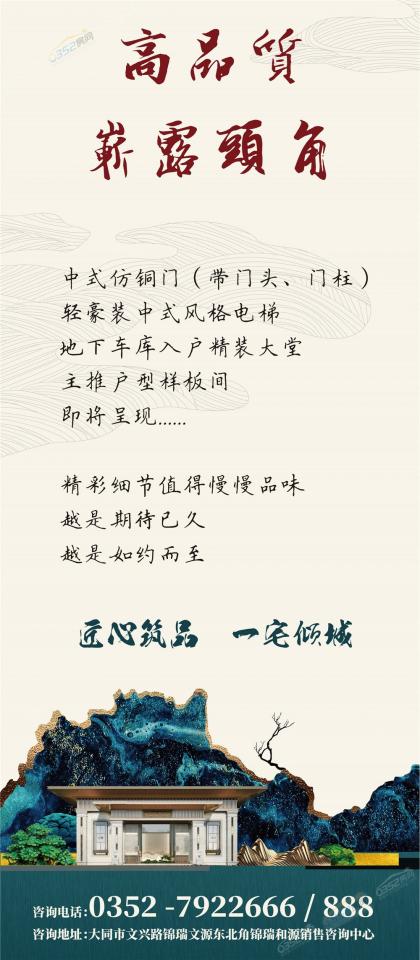 0352房网
高品質
嶄露頭角
中式仿铜门（带门头、门柱）
轻豪装中式风格电梯
地下车库入户精装大堂
主推户型样板间
即将呈现......
精彩细节值得慢慢品味
越是期待已久
越是如约而至
匠心筑品 一宅倾城
咨询电话:0352 -7922666 / 888
咨询地址:大同市文兴路锦瑞文源东北角锦瑞和源销售咨询中心